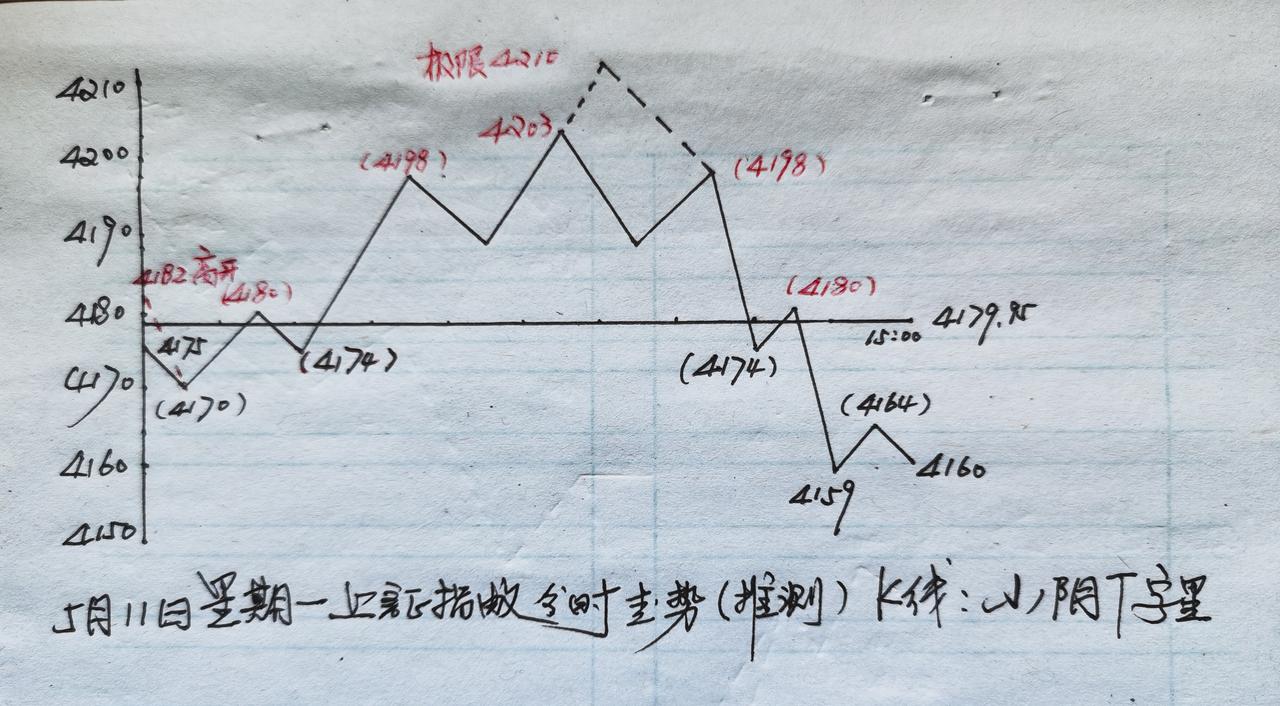 极限4210
4210
4203
4200
(4198)
(4198)
4190
4182高开
(4180)
(4180)
4180
4179.95
15:00
4175
(4174)
(4174)
4170
(4170)
(4164)
4160
4160
4159
4150
5月11日星期一上证指数分时走势(推测) K线:小阴丅字星